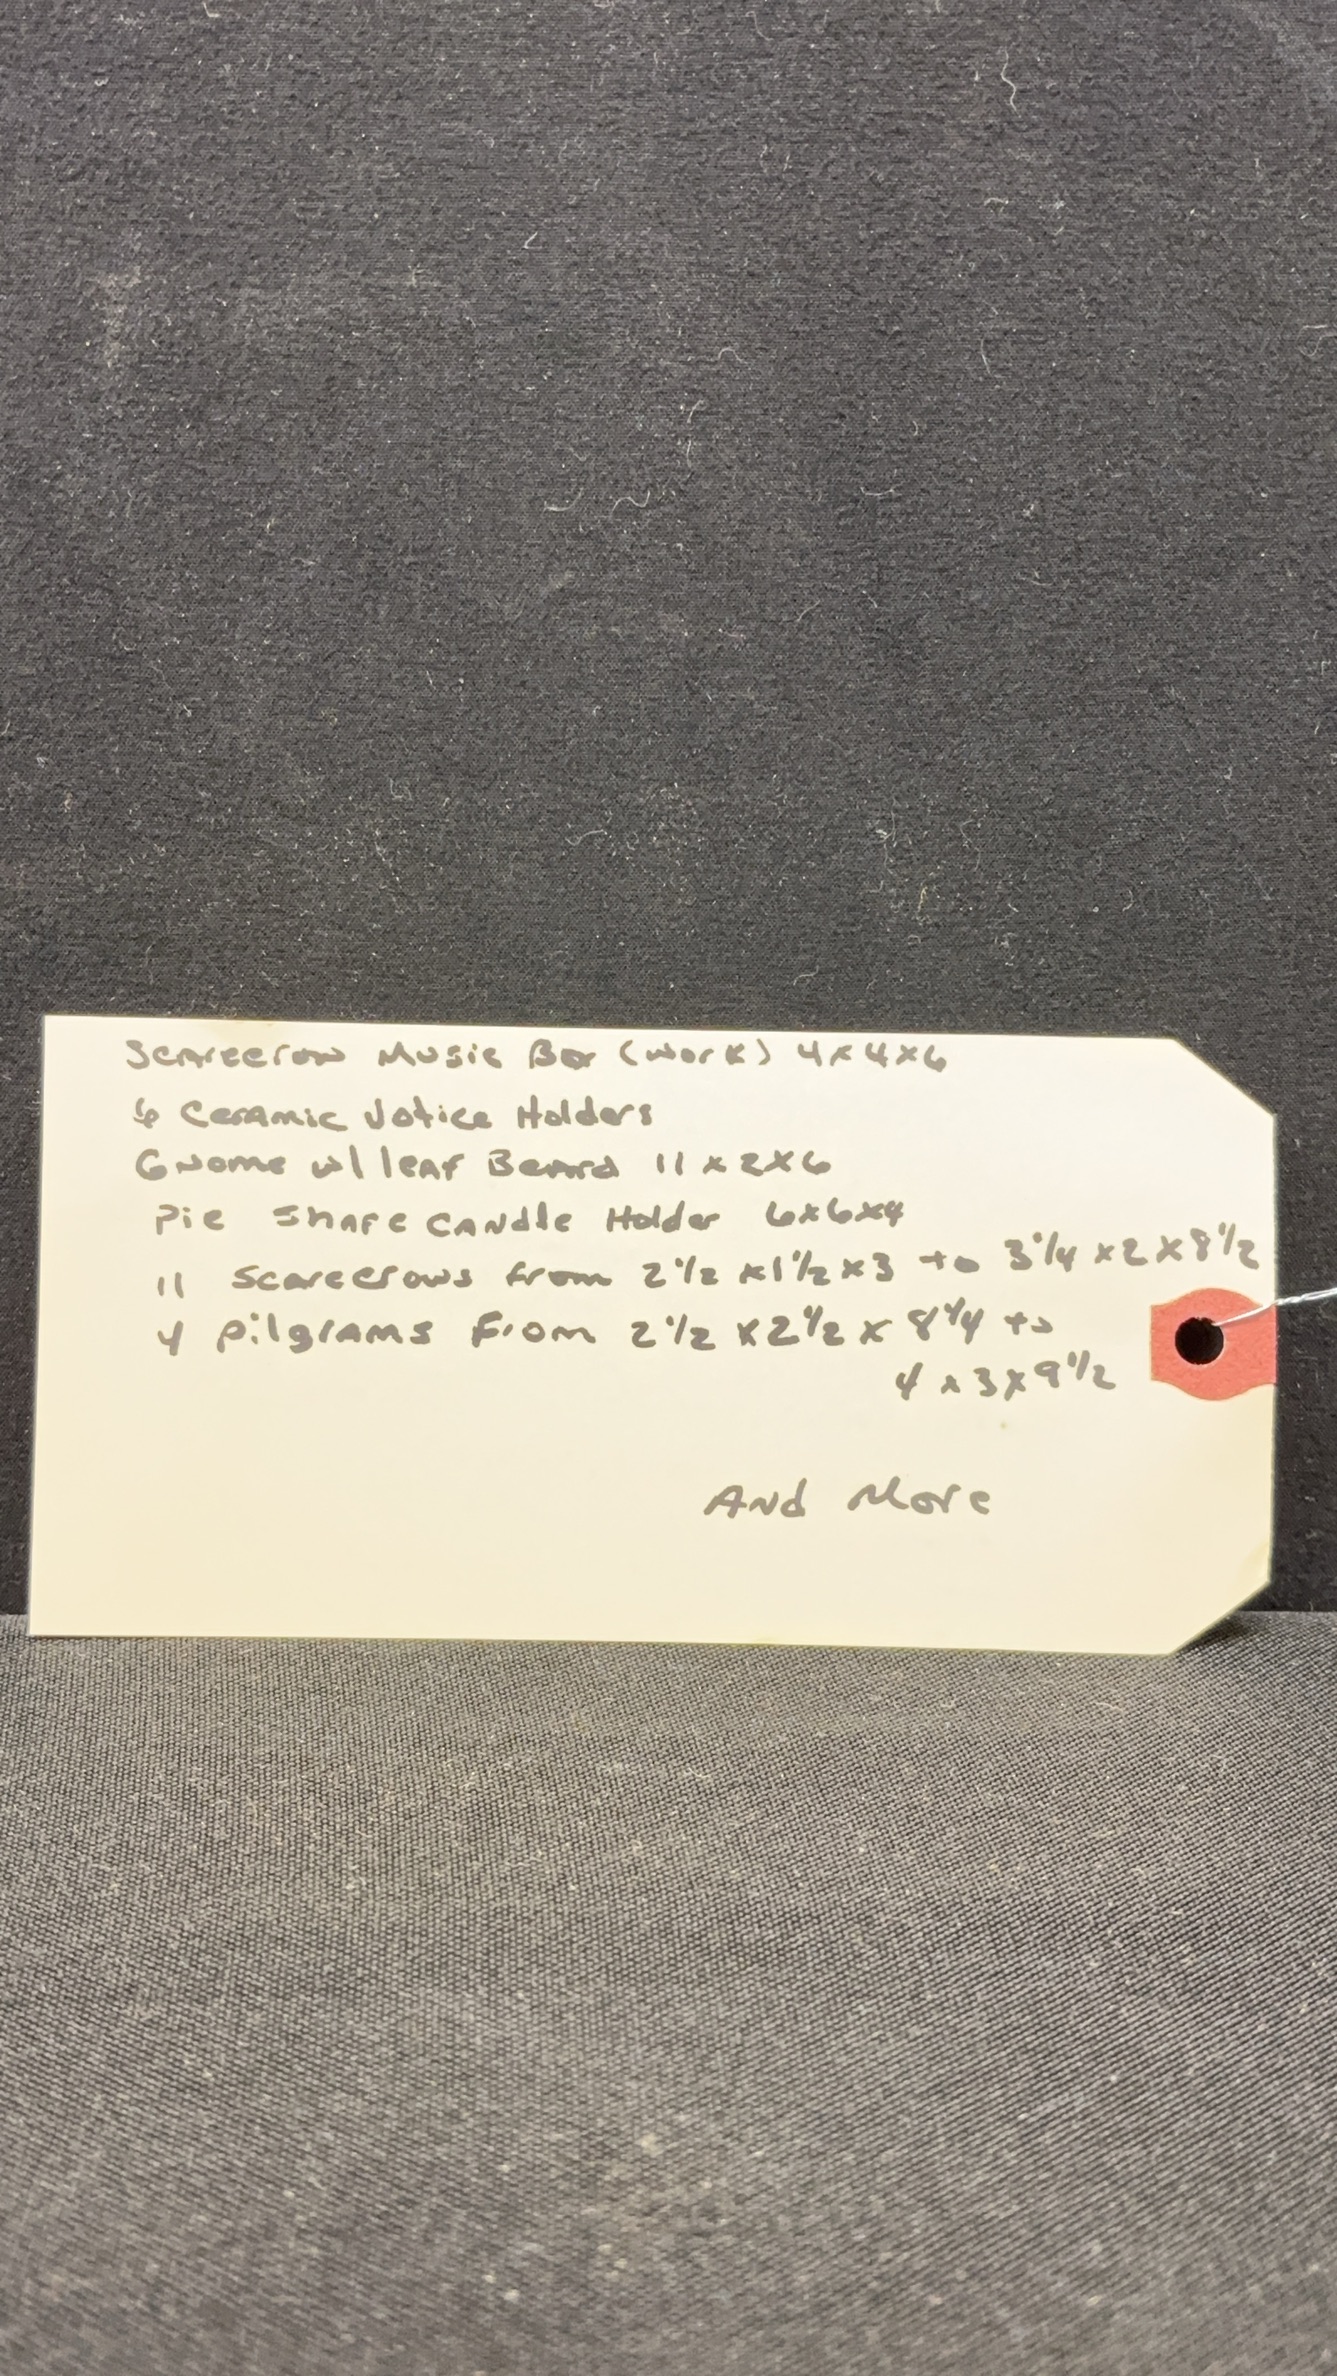 Scarecrow Music Box (work) 4x4x6
6 Ceramic Votice Holders
Gnome w/ leaf Beard 11 x 2 x 6
Pie Shape CANdle Holder 6x6x4
11 Scarecrows from 2 1/2 x 1 1/2 x 3 to 3 1/4 x 2 x 8 1/2
4 pilgrams From 2 1/2 x 2 1/2 x 8 1/4 to
4 x 3 x 9 1/2
And More